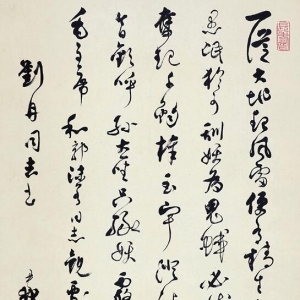 一從大地起風雷便有精生
愚氓猶可訓妖為鬼蜮必成
奮起千鈞棒玉宇澄
今日歡呼孫大聖只緣妖霧
毛主席 和郭沫若同志觀
劉丹同志
尹默